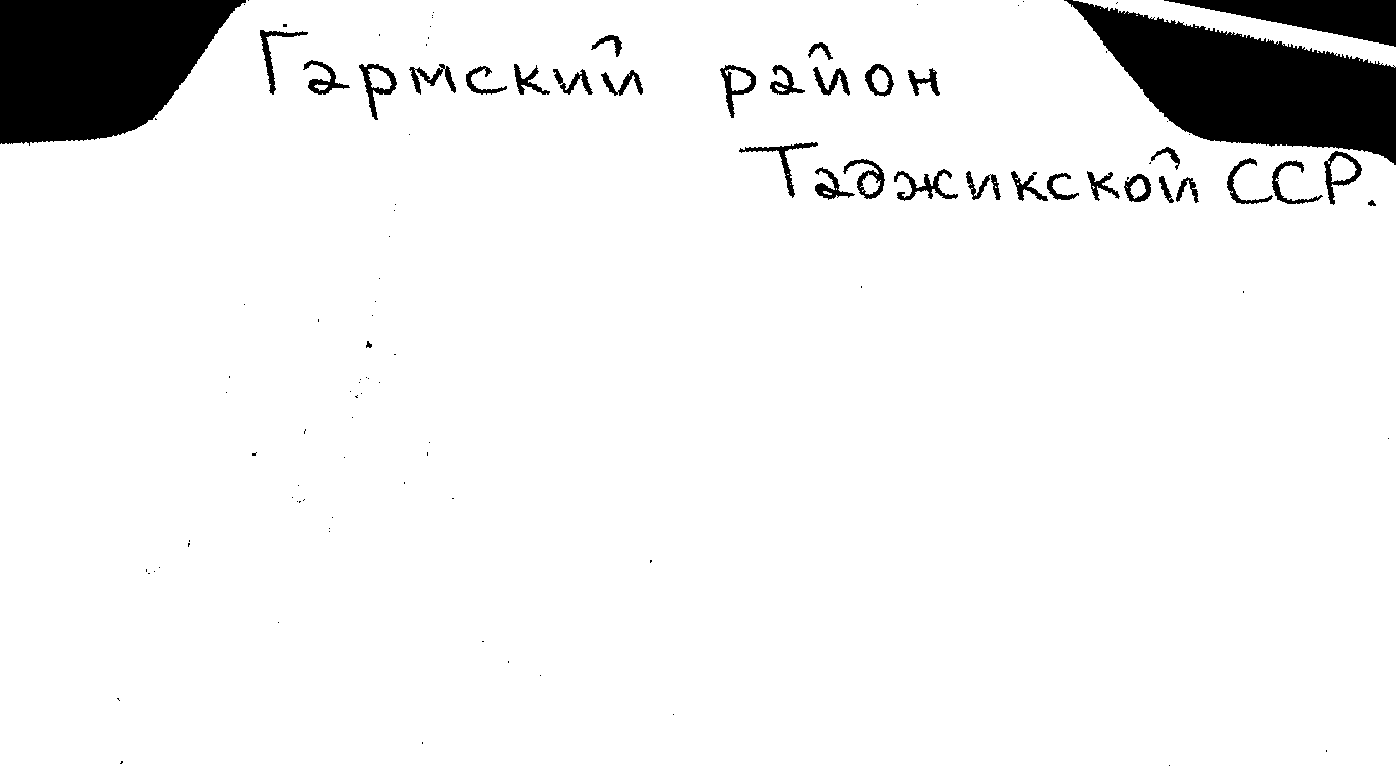 Гармский район
Таджикской ССР.